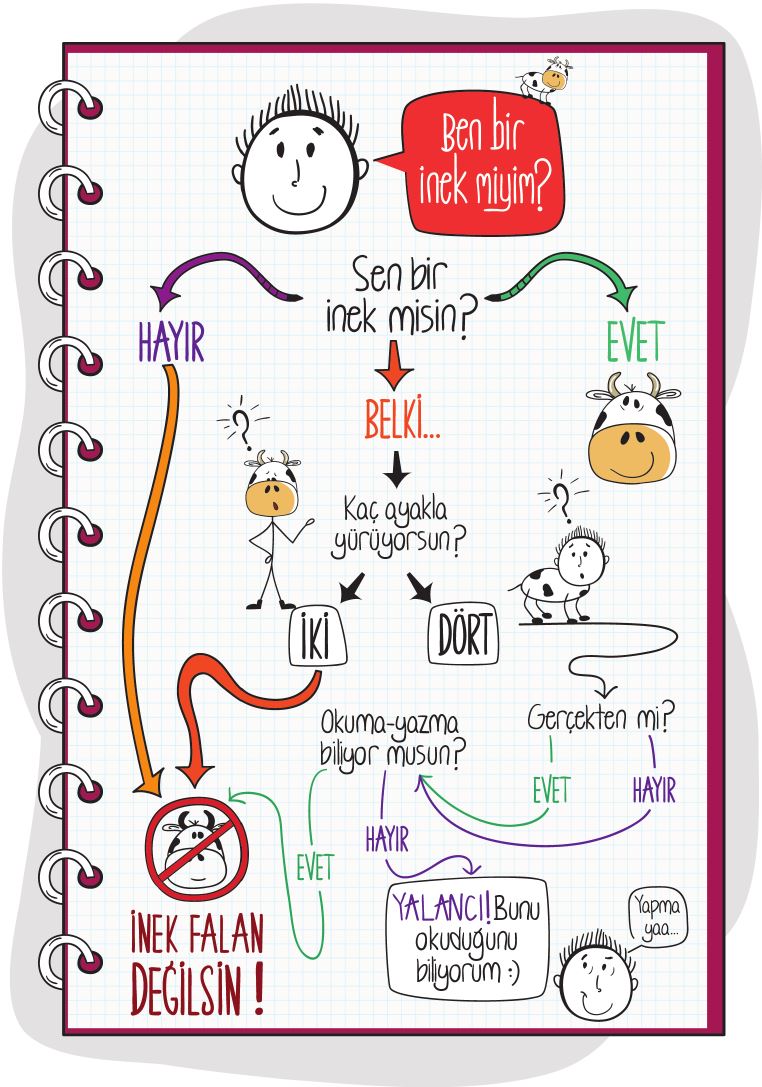 Ben bir
inek miyim?
Sen bir
inek misin?
HAYIR
EVET
BELKİ...
?
Kaç ayakla
yürüyorsun?
?
İKİ
DÖRT
Okuma-yazma
biliyor musun?
Gerçekten mi?
EVET
HAYIR
HAYIR
EVET
YALANCI! Bunu
okuduğunu
biliyorum :)
Yapma
yaa...
İNEK FALAN
DEĞİLSİN !